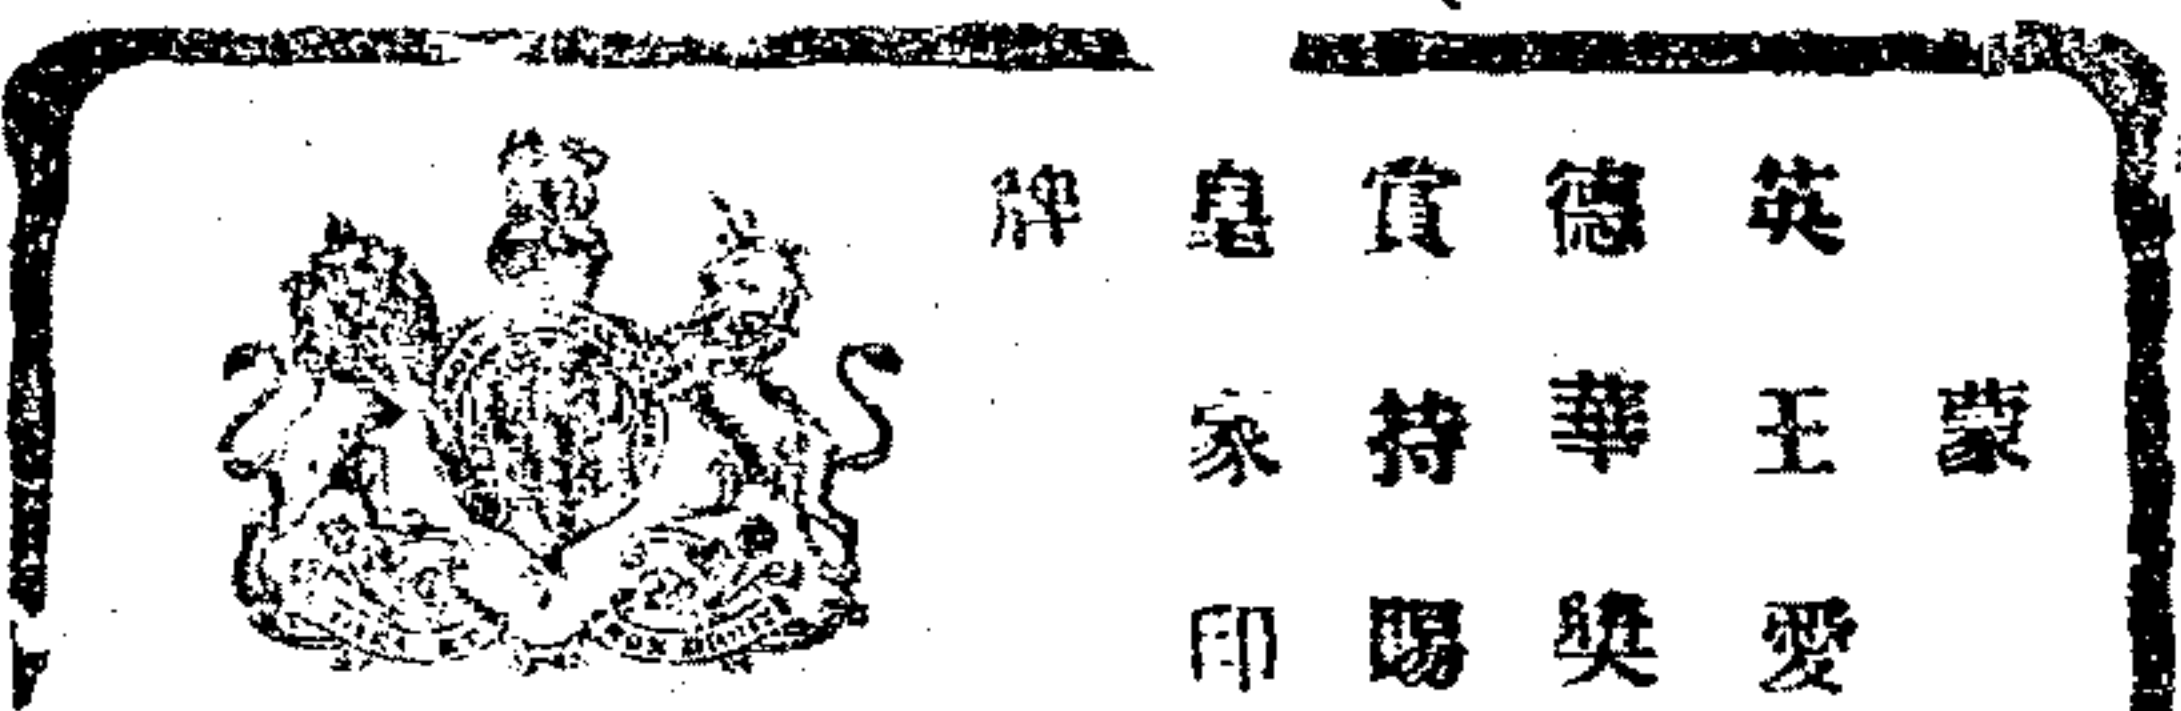 蒙
英王愛
德華奬
賞持賜
皇家印
牌